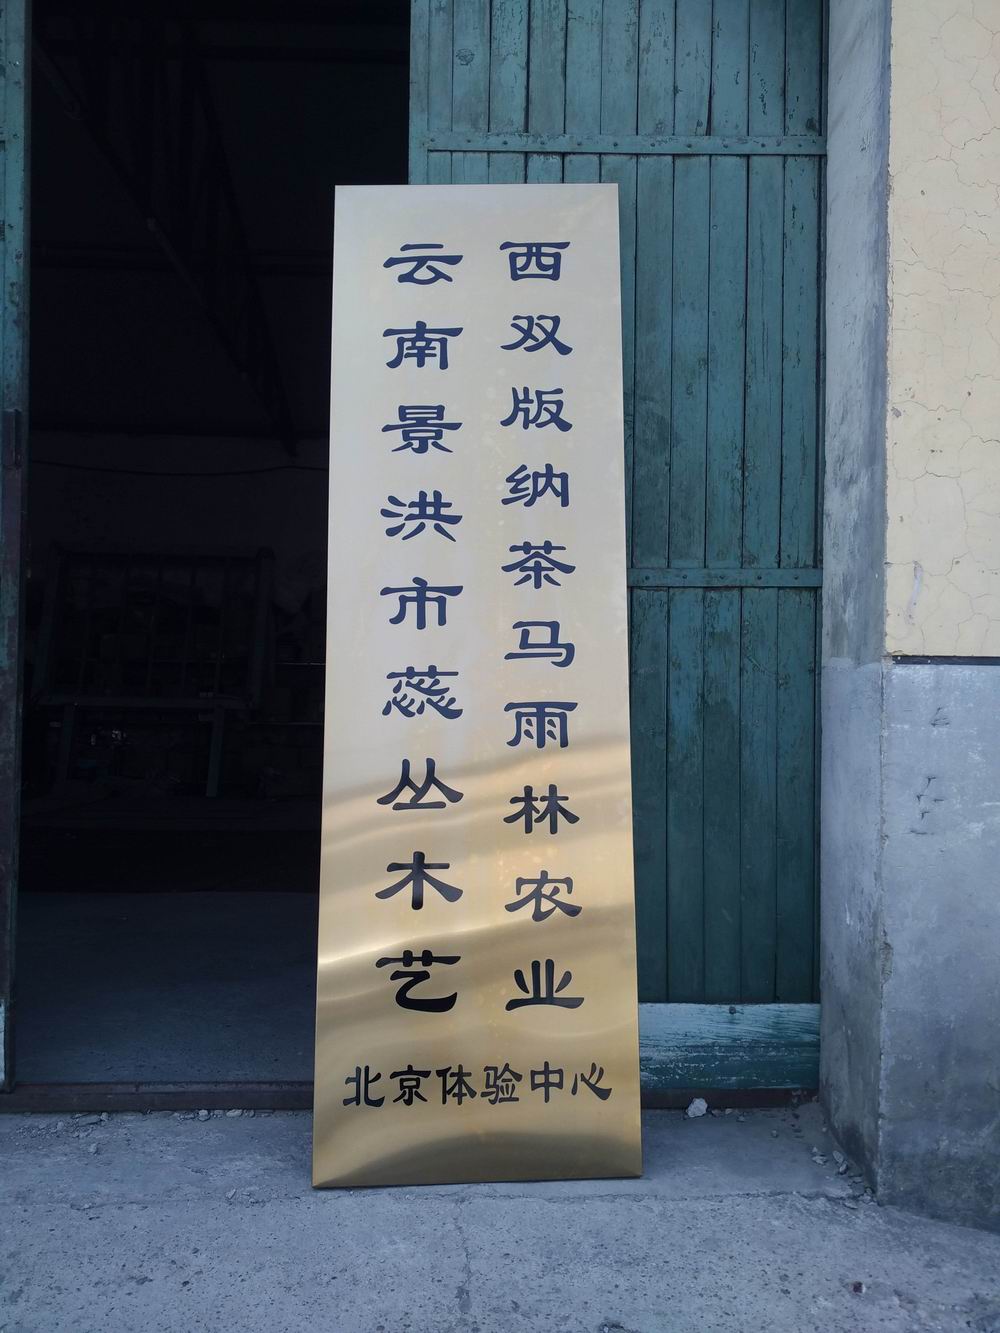 西双版纳茶马雨林农业
云南景洪市蕊丛木艺
北京体验中心